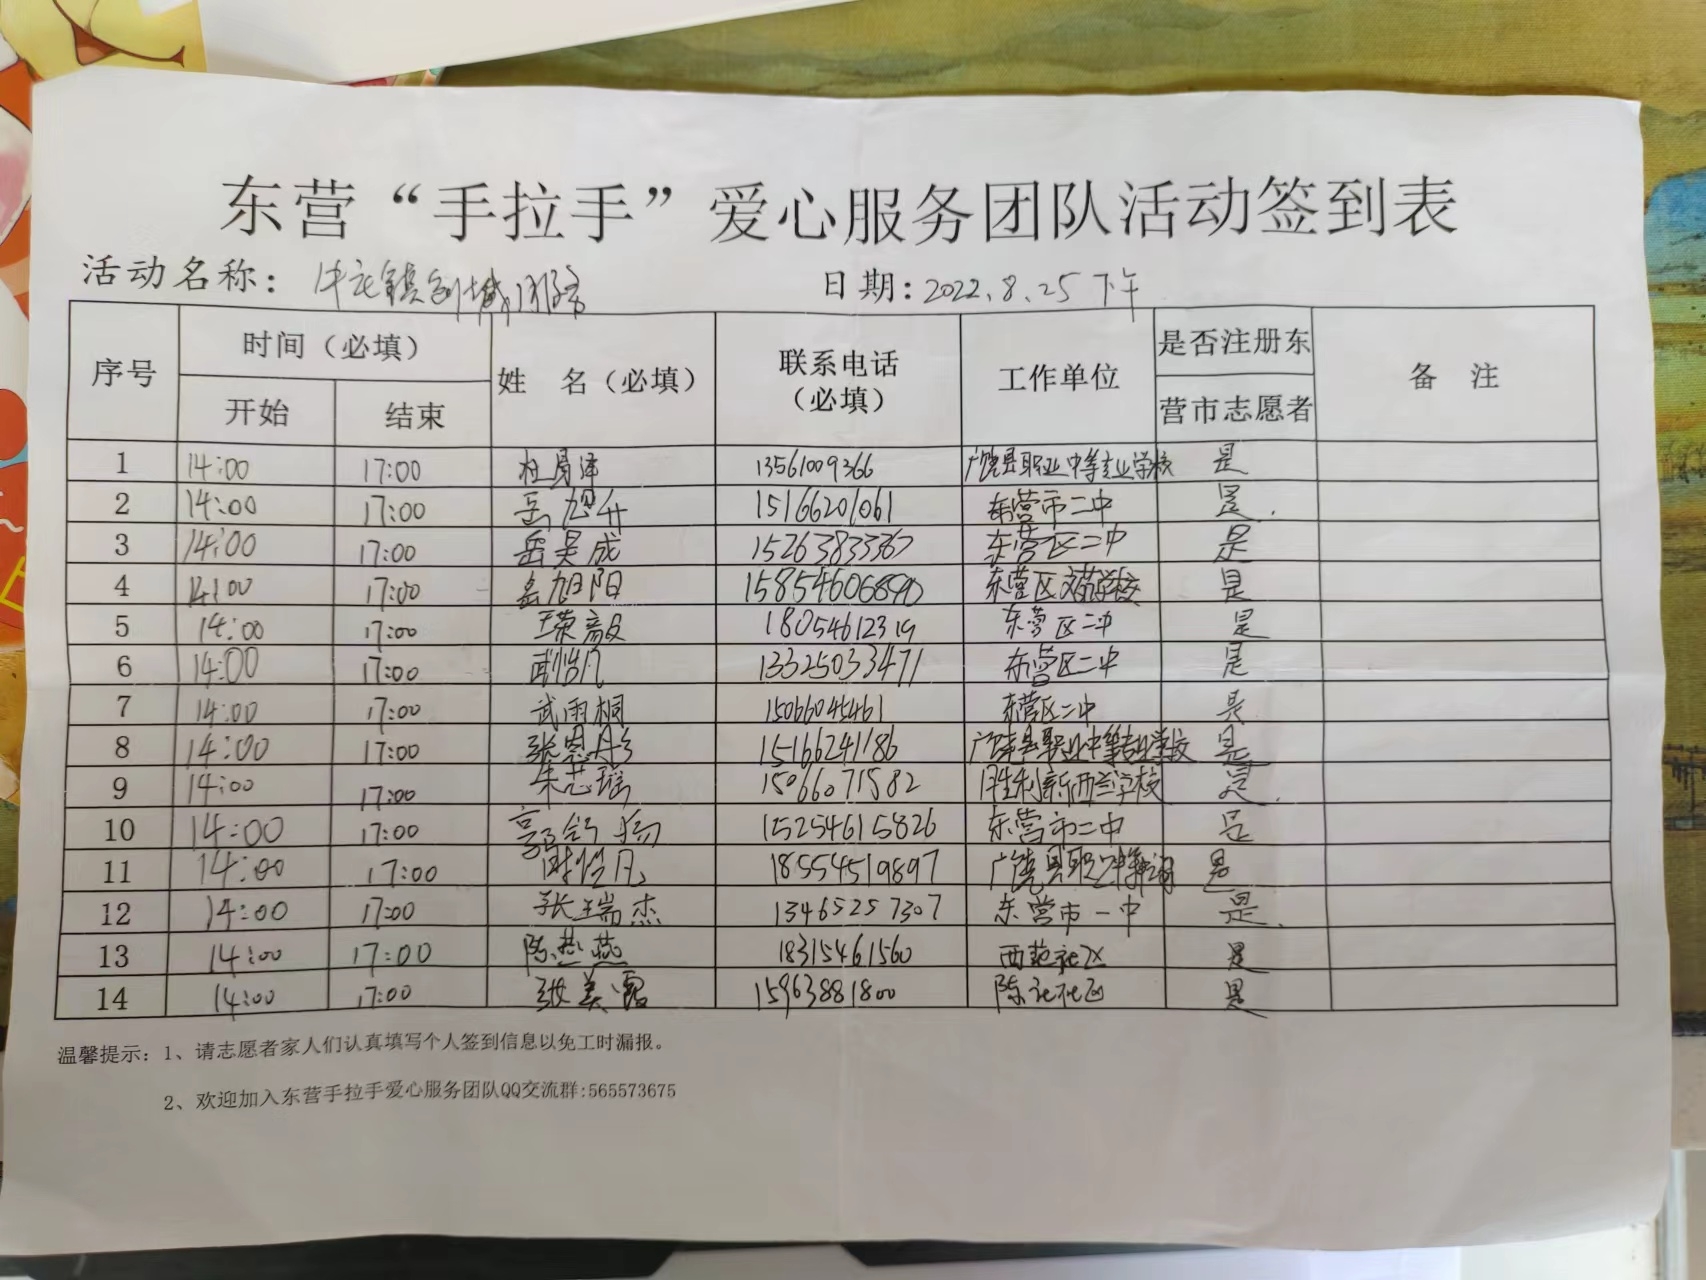 东营“手拉手”爱心服务团队活动签到表
活动名称： 日期：2022.8.25下午
序号 时间（必填） 姓 名（必填） 联系电话（必填） 工作单位 是否注册东营市志愿者 备 注
开始 结束
1 14:00 17:00 13561009366 广饶县职业中等专业学校 是
2 14:00 17:00 岳旭升 15166201061 东营市二中 是.
3 14:00 17:00 岳昊成 15263833367 东营区二中 是
4 14:00 17:00 岳旭阳 东营区文苑学校 是
5 14:00 17:00 王荣毅 18054612319 东营区二中 是
6 14:00 17:00 武怡凡 13325033471 东营区二中 是
7 14:00 17:00 武雨桐 15066045461 东营区二中 是
8 14:00 17:00 张恩彤 15166241186 广饶县职业中等专业学校 是
9 14:00 17:00 朱芯瑶 15066071582 胜利新西兰学校 是.
10 14:00 17:00 15254615826 东营市二中 是
11 14:00 17:00 18554519897 广饶县职业中等 是
12 14:00 17:00 张瑞杰 13465257307 东营市一中 是.
13 14:00 17:00 陈燕燕 18315461560 西范社区 是
14 14:00 17:00 张美露 15963881800 社区 是
温馨提示：1、请志愿者家人们认真填写个人签到信息以免工时漏报。
2、欢迎加入东营手拉手爱心服务团队QQ交流群:565573675